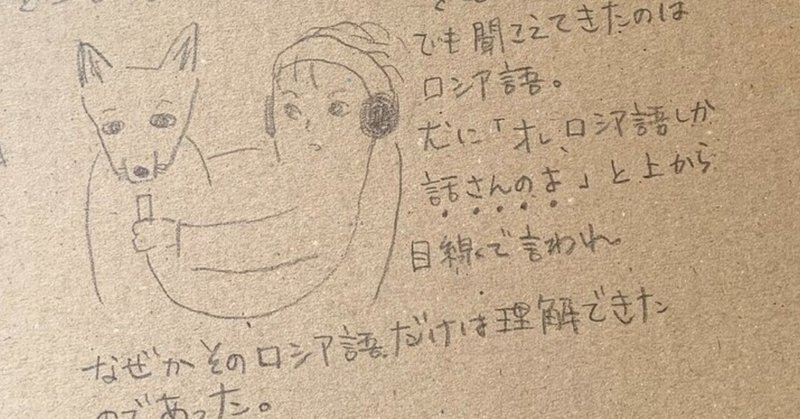 でも聞こえてきたのは
ロシア語。
犬に「オレ、ロシア語しか
話さんのよ」と上から
目線で言われ
なぜかそのロシア語だけは理解できた
のであった。